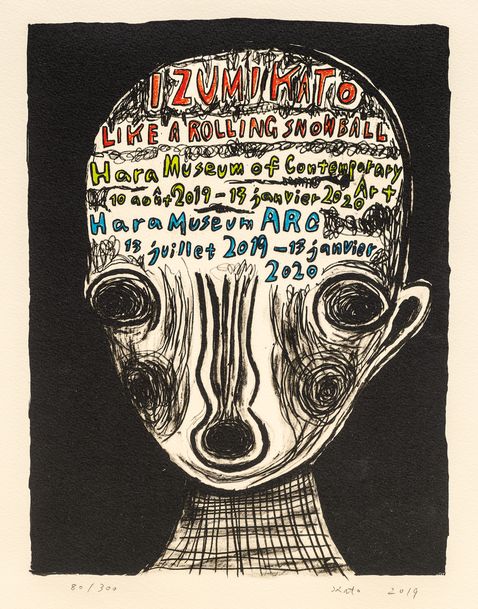 IZUMI KATO
LIKE A ROLLING SNOWBALL
Hara Museum of Contemporary Art
10 août 2019 - 13 janvier 2020
Hara Museum ARC
13 juillet 2019 - 13 janvier
2020
80/300
Kato 2019